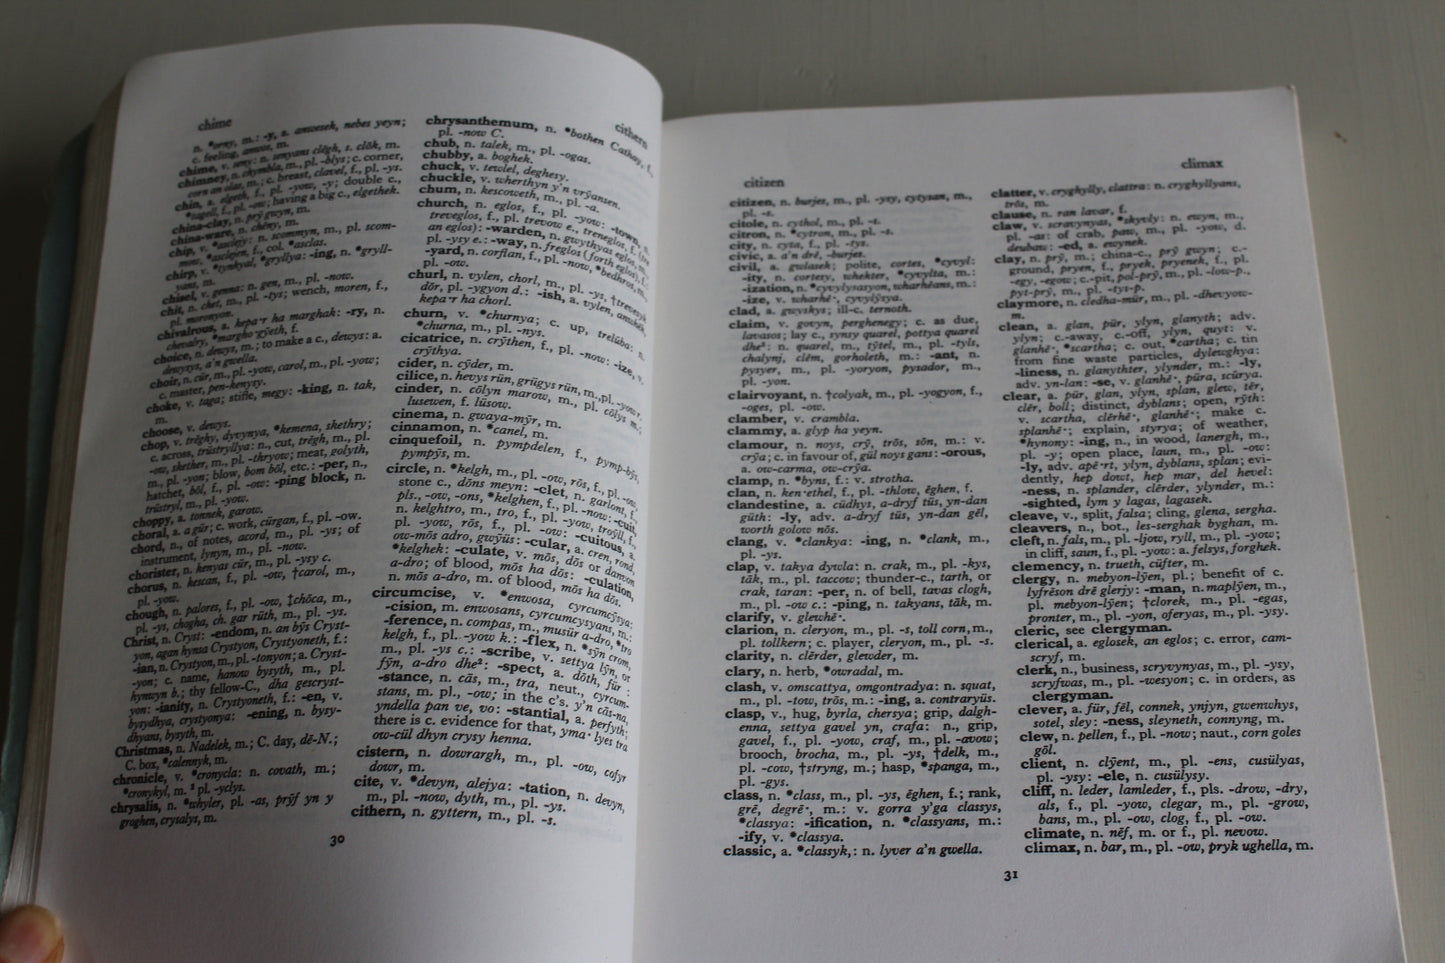 chime
cithern
n. *orny, m.: -y, a. anwesek, nebes yeyn;
c. feeling, anwos, m.
chime, v. seny: n. senyans clēgh, s. clōk, m.
chimney, n. chymbla, m., pl. -blys; c. corner,
corn an olas, m.; c. breast, clavel, f., pl. -ys.
chin, a. elgeth, f., pl. -yow, -y; double c.,
*tagell, f., pl. -ow; having a big c., elgethek.
china-clay, n. prȳ gwyn, m.
china-ware, n. chēny, m.
chip, v. *asclejy: n. scommyn, m., pl. scom-
mow, *asclejen, f., col. *asclas.
chirp, v. *tynkyal, *gryllya: -ing, n. *gryll-
yans, m.
chisel, v. genna: n. gen, m., pl. -now.
chit, n. chet, m., pl. -tys; wench, moren, f.,
pl. moronyon.
chivalrous, a. kepa·r ha marghak: -ry, n.
chevalry, *margho·gȳeth, f.
choice, n. dewys, m.; to make a c., dewys: a.
dewysys, a'n gwella.
choir, n. cür, m., pl. -yow, carol, m., pl. -yow;
c. master, pen-kenysy.
choke, v. taga; stifle, megy: -king, n. tak,
m.
choose, v. dewys.
chop, v. trēghy, dyvynya, *kemena, skethry;
c. across, trüstryllya: n., cut, trēgh, m., pl.
-ow, skether, m., pl. -throw; meat, golyth,
m., pl. -yon; blow, bom bōl, etc.: -per, n.,
hatchet, bōl, f., pl. -ow: -ping block, n.
trüstryl, m., pl. -yow.
choppy, a. tonnek, garow.
choral, a. a gür; c. work, cürgan, f., pl. -ow.
chord, n., of notes, acord, m., pl. -ys; of
instrument, lynyn, m., pl. -now.
chorister, n. kenyas cür, m., pl. -ysy c.
chorus, n. kescan, f., pl. -ow, †carol, m.,
pl. -yow.
chough, n. palores, f., pl. -ow, ‡chōca, m.,
pl. -ys, chogha, ch. gar rüth, m., pl. -ys.
Christ, n. Cryst: -endom, n. an bȳs Cryst-
yon, agan hynsa Crystyon, Crystyoneth, f.:
-ian, n. Crystyon, m., pl. -tonyon; a. Cryst-
-yon; c. name, hanow bysyth, m., pl.
hynwyn b.; thy fellow-C., dha gescryst-
yon: -ianity, n. Crystyoneth, f.: -en, v.
bysydhya, crystyonya: -ening, n. bysy-
dhyans, bysyth, m.
Christmas, n. Nadelek, m.; C. day, dē-N.;
C. box, *calennyk, m.
chronicle, v. *cronycla: n. covath, m.;
*cronykyl, m. pl. -yclys.
chrysalis, n. *whyler, pl. -as, prȳf yn y
groghen, crysalys, m.
chrysanthemum, n. *bothen Cathay, f.,
pl. -now C.
chub, n. talek, m., pl. -ogas.
chubby, a. boghek.
chuck, v. tewlel, deghesy.
chuckle, v. wherthyn y'n vrȳansen.
chum, n. kescoweth, m., pl. -a.
church, n. eglos, f., pl. -yow: -town, n.
treveglos, f., pl. trevow e., treneglos, f. (tre
an eglos): -warden, n. gwythyas eglos, m.,
pl. -ysy e.: -way, n. freglos (forth eglos), f.:
-yard, n. corflan, f., pl. -now, *bedkros, m.,
pl. -ow.
churl, n. vylen, chorl, m., pl. -ys, †trevesyk
dōr, pl. -ygyon d.: -ish, a. vylen, amuhek,
kepa·r ha chorl.
churn, v. *churnya; c. up, trelüba: n.
*churna, m., pl. -nys.
cicatrice, n. crȳthen, f., pl. -now: -ize, v.
crȳthya.
cider, n. cȳder, m.
cilice, n. hevys rün, grügys rün, m., pl. -yow r.
cinder, n. cōlyn marow, m., pl. cōlys m.;
lusewen, f. lüsow.
cinema, n. gwaya-mȳr, m.
cinnamon, n. *canel, m.
cinquefoil, n. pympdelen, f., pymp-bȳs,
pympȳs, m.
circle, n. *kelgh, m., pl. -ow, rōs, f., pl. -ow,
stone c., dōns meyn: -clet, n. garlont, f.,
pls., -ow, -ons, *kelghen, f., pl. -now: -cuit,
n. kelghtro, m., tro, f., pl. -yow, troyll, f.,
pl. -yow, rōs, f., pl. -ow: -cuitous, a.
ow-mōs adro, gwȳüs: -cular, a. cren, rond,
*kelghek: -culate, v. mōs, dōs or danvon
a-dro; of blood, mōs ha dōs: -culation,
n. mōs a-dro, m. of blood, mōs ha dōs.
circumcise, v. *enwosa, cyrcumcȳsya:
-cision, m. enwosans, cyrcumcysyans, m.:
-ference, n. compas, m., musür a-dro, *tro
kelgh, f., pl. -yow k.: -flex, n. *sȳn crom,
m., pl. -ys c.: -scribe, v. settya lȳn, or
fȳn, a-dro dhe²: -spect, a. dōth, für:
-stance, n. cās, m., tra, neut., cyrcum-
stans, m. pl., -ow; in the c's. y'n cās-na,
yndella pan ve, vo: -stantial, a. perfyth;
there is c. evidence for that, yma· lyes tra
ow-cül dhyn crysy henna.
cistern, n. dowrargh, m., pl. -ow, cofyr
dowr, m.
cite, v. *devyn, alejya: -tation, n. devyn,
m., pl. -now, dyth, m., pl. -ys.
cithern, n. gyttern, m., pl. -s.
30
citizen
climax
citizen, n. burjes, m., pl. -ysy, cytysan, m.,
pl. -s.
citole, n. cythol, m., pl. -s.
citron, n. *cytron, m., pl. -s.
city, n. cyta, f., pl. -tys.
civic, a. a'n drē, -burjes.
civil, a. gwlasek; polite, cortes, *cyvyl:
-ity, n. cortesy, whekter, *cyvylta, m.:
-ization, n. *cyvylysaryon, wharhēans, m.:
-ize, v. wharhē·, cyvylȳsya.
clad, a. gwyskys; ill-c. ternoth.
claim, v. govyn, perghenegy; c. as due,
lavasos; lay c., synsy quarel, pottya quarel
dhe²: n. quarel, m., tȳtel, m., pl. -tyls,
chalynj, clēm, gorholeth, m.: -ant, n.
pysyer, m., pl. -yoryon, pysador, m.,
pl. -yon.
clairvoyant, n. †colyak, m., pl. -yogyon, f.,
-oges, pl. -ow.
clamber, v. crambla.
clammy, a. glyp ha yeyn.
clamour, n. noys, crȳ, trōs, sōn, m.: v.
crȳa; c. in favour of, gül noys gans: -orous,
a. ow-carma, ow-crȳa.
clamp, n. *byns, f.: v. strotha.
clan, n. ken·ethel, f., pl. -thlow, ēghen, f.
clandestine, a. cüdhys, a-dryf tüs, yn-dan
güth: -ly, adv. a-dryf tüs, yn-dan gēl,
worth golow nōs.
clang, v. *clankya: -ing, n. *clank, m.,
pl. -ys.
clap, v. takya dywla: n. crak, m., pl. -kys,
tāk, m., pl. taccow; thunder-c., tarth, or
crak, taran: -per, n. of bell, tavas clogh,
m., pl. -ow c.: -ping, n. takyans, tāk, m.
clarify, v. glewhē·.
clarion, n. cleryon, m., pl. -s, toll corn, m.,
pl. tollkern; c. player, cleryon, m., pl. -s.
clarity, n. clērder, glewder, m.
clary, n. herb, *owradal, m.
clash, v. omscattya, omgontradya: n. squat,
m., pl. -tow, trōs, m.: -ing, a. contraryüs.
clasp, v., hug, byrla, chersya; grip, dalgh-
enna, settya gavel yn, crafa: n., grip,
gavel, f., pl. -yow, craf, m., pl. -avow;
brooch, brocha, m., pl. -ys, †delk, m.,
pl. -cow, †stryng, m.; hasp, *spanga, m.,
pl. -gys.
class, n. *class, m., pl. -ys, ēghen, f.; rank,
grē, degrē·, m.: v. gorra y'ga classys,
*classya: -ification, n. *classyans, m.:
-ify, v. *classya.
classic, a. *classyk,: n. lyver a'n gwella.
clatter, v. cryghylly, clattra: n. cryghyllyans,
trōs, m.
clause, n. ran lavar, f.
claw, v. scravynyas, *skyvly: n. ewyn, m.,
pl. -as: of crab, paw, m., pl. -yow, d.
deubaw: -ed, a. ewynek.
clay, n. prȳ, m.; china-c., prȳ gwyn; c.-
ground, pryen, f., pryek, pryenek, f., pl.
-egy, -egow; c.-pit, pol-prȳ, m., pl. -low-p.,
pyt-prȳ, m., pl. -tys-p.
claymore, n. cledha-mür, m., pl. -dhevyow-
m.
clean, a. glan, pür, ylyn, glanyth; adv.
ylyn; c.-away, c.-off, ylyn, quyt: v.
glanhē·, *scartha; c. out, *cartha; c. tin
from fine waste particles, dylewghya:
-liness, n. glanythter, ylynder, m.: -ly,
adv. yn-lan: -se, v. glanhē·, püra, scürya.
clear, a. pür, glan, ylyn, splan, glew, tēr,
clēr, boll; distinct, dyblans; open, rȳth:
v. scartha, clērhē·, glanhē·; make c.
splanhē·; explain, styrya; of weather,
*hynony: -ing, n., in wood, lanergh, m.,
pl. -y; open place, laun, m., pl. -ow:
-ly, adv. apē·rt, ylyn, dyblans, splan; evi-
dently, hep dowt, hep mar, del hevel:
-ness, n. splander, clērder, ylynder, m.:
-sighted, lym y lagas, lagasek.
cleave, v., split, falsa; cling, glena, sergha.
cleavers, n., bot., les-serghak byghan, m.
cleft, n. fals, m., pl. -ljow, ryll, m., pl. -yow;
in cliff, saun, f., pl. -yow: a. felsys, forghek.
clemency, n. trueth, cüfter, m.
clergy, n. mebyon-lȳen, pl.; benefit of c.
lyfrēson drē glerjy: -man, n. maplȳen, m.,
pl. mebyon-lȳen; †clorek, m., pl. -egas,
pronter, m., pl. -yon, oferyas, m., pl. -ysy.
cleric, see clergyman.
clerical, a. eglosek, an eglos; c. error, cam-
scryf, m.
clerk, n., business, scryvynyas, m., pl. -ysy,
scryfwas, m., pl. -wesyon; c. in orders, as
clergyman.
clever, a. für, fēl, connek, ynjyn, gwenwhys,
sotel, sley: -ness, sleyneth, connyng, m.
clew, n. pellen, f., pl. -now; naut., corn goles
gōl.
client, n. clȳent, m., pl. -ens, cusülyas,
pl. -ysy: -ele, n. cusülysy.
cliff, n. leder, lamleder, f., pls. -drow, -dry,
als, f., pl. -yow, clegar, m., pl. -grow,
bans, m., pl. -ow, clog, f., pl. -ow.
climate, n. nēf, m. or f., pl. nevow.
climax, n. bar, m., pl. -ow, pryk ughella, m.
31